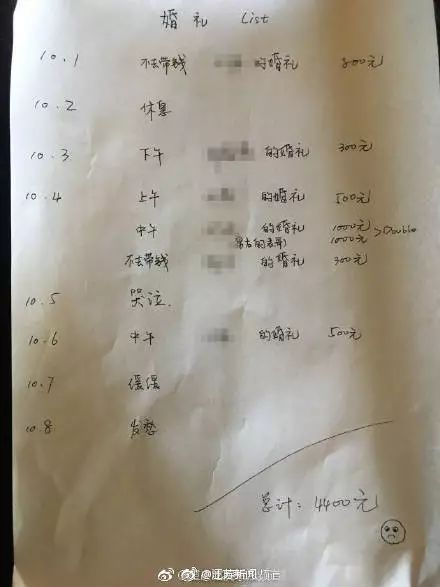 婚礼 List
10.1 不去带钱 的婚礼 800元
10.2 休息
10.3 下午 的婚礼 300元
10.4 上午 的婚礼 500元
中午 的婚礼 1000元
1000元 >Double
不去带钱 的婚礼 300元
10.5 哭泣.
10.6 中午 的婚礼 500元
10.7 缓缓
10.8 发愁
总计: 4400元
@江苏新闻